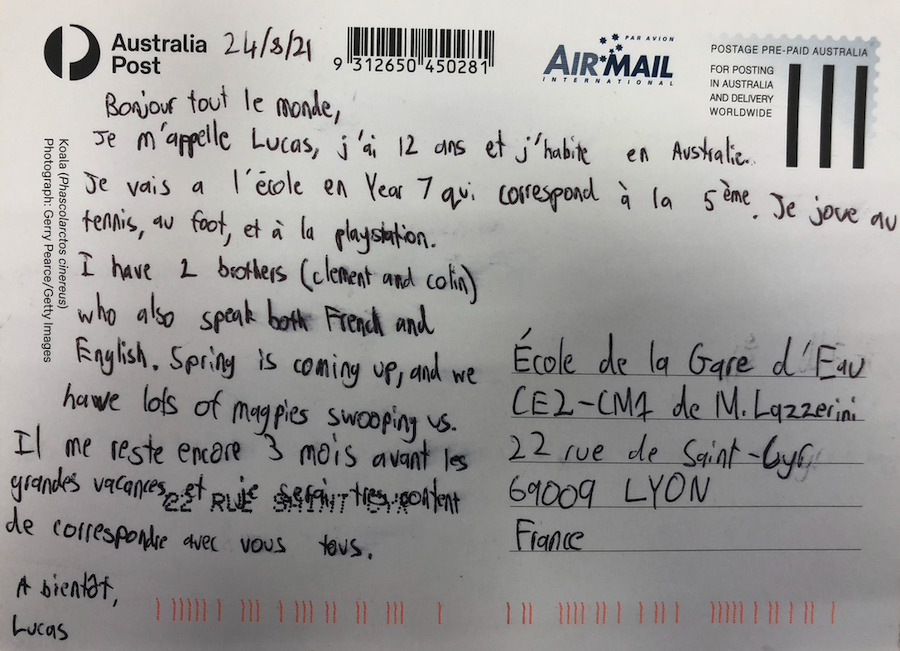 Australia Post
24/8/21
9 312650 450281
PAR AVION
AIR MAIL
INTERNATIONAL
POSTAGE PRE-PAID AUSTRALIA
FOR POSTING
IN AUSTRALIA
AND DELIVERY
WORLDWIDE
Koala (Phascolarctos cinereus)
Photograph: Gerry Pearce/Getty Images
Bonjour tout le monde,
Je m'appelle Lucas, j'ai 12 ans et j'habite en Australie.
Je vais a l'école en Year 7 qui correspond à la 5ème. Je joue au
tennis, au foot, et à la playstation.
I have 2 brothers (clement and colin)
who also speak both French and
English. Spring is coming up, and we
hawe lots of magpies swooping us.
Il me reste encore 3 mois avant les
grandes vacances, et je serai tres content
22 RUE SAINT CYR
de correspondre avec vous tous.
A bientôt,
Lucas
École de la Gare d'Eau
CE2-CM1 de M. Lazzerini
22 rue de Saint-Cyr
69009 LYON
France